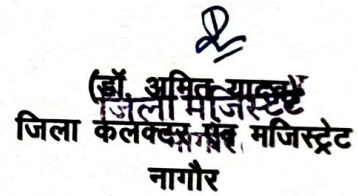 (डॉ. अमित यादव)
जिला मजिस्ट्रेट
जिला कलक्टर एवं मजिस्ट्रेट
नागौर
नागौर